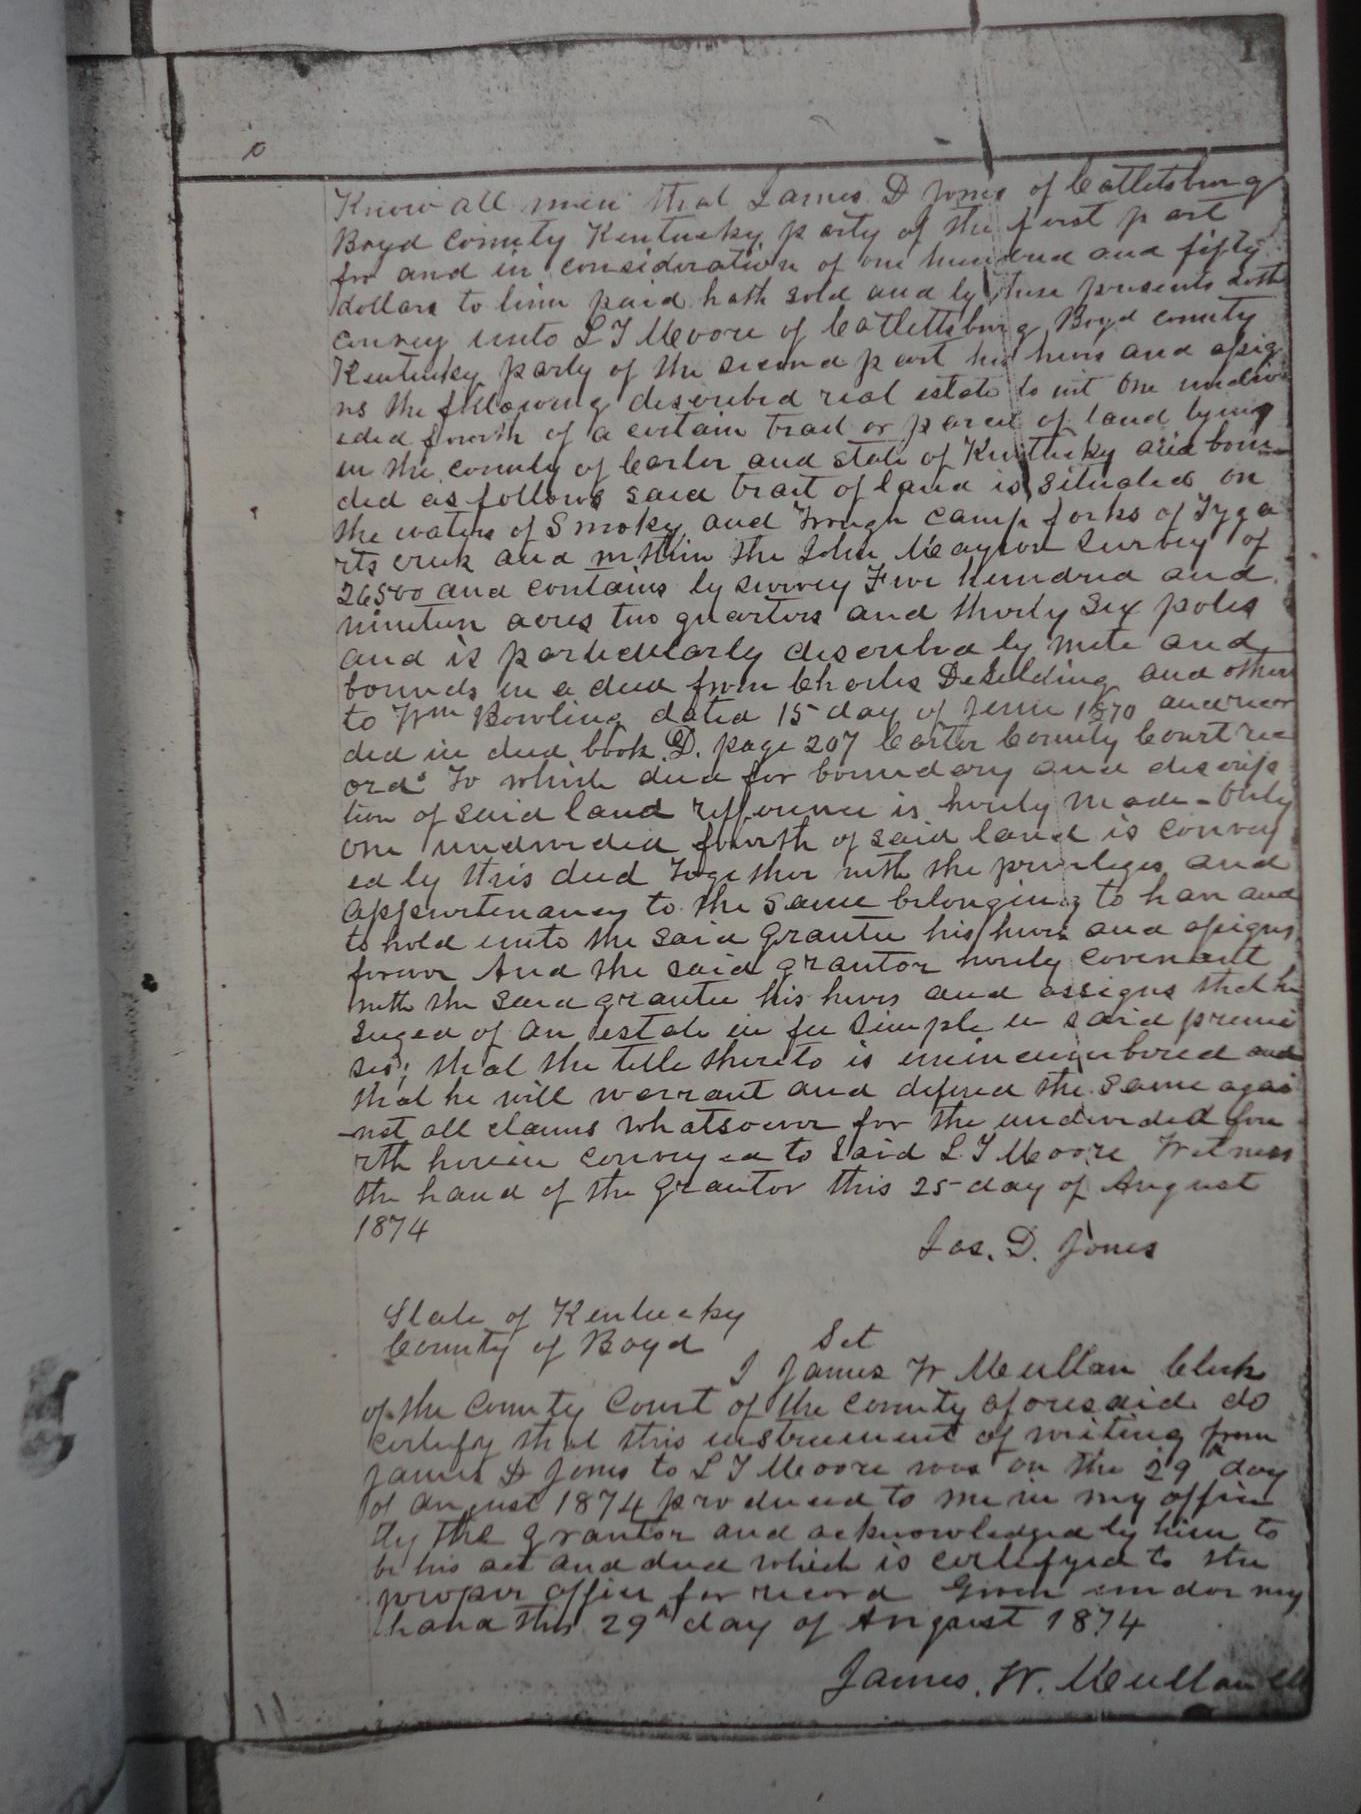 1
Know all men that James D Jones of Catlettsburg
Boyd County Kentucky party of the first part
for and in consideration of one hundred and fifty
dollars to him paid hath sold and by these presents doth
convey unto L T Moore of Catlettsburg Boyd County
Kentucky party of the second part his heirs and assig
ns the following described real estate to wit One undiv
ided fourth of a certain tract or parcel of land lying
in the county of Carter and state of Kentucky and boun
ded as follows said tract of land is situated on
the waters of Smoky and Trough Camp forks of Tyga
rts creek and within the John Mayson Survey of
26500 and contains by survey Five hundred and
nineteen acres two quarters and thirty Six poles
and is particularly described by mete and
bounds in a deed from Charles and others
to Wm Bowling dated 15 day of June 1870 and recor
ded in deed book D. page 207 Carter County Court rec
ords To which deed for boundary and descrip
tion of said land refference is hereby made - Only
one undivided fourth of said land is convey
ed by this deed Together with the privileges and
appurtenancy to the same belonging to have and
to hold unto the said grantee his heirs and assigns
forever And the said grantor hereby covenant
with the said grantee his heirs and assigns that he
seized of an estate in fee Simple in said premi
ses; that the title thereto is unincumbered and
that he will warrant and defend the same agai
nst all claims whatsoever for the undivided fou
rth herein conveyed to said L T Moore Witness
the hand of the grantor this 25 day of August
1874
Jas. D. Jones
State of Kentucky
County of Boyd Sct
I James W Mcullan Clerk
of the County Court of the county aforesaid do
certify that this instrument of writing from
James D Jones to L T Moore was on the 29th day
of August 1874 produced to me in my office
by the grantor and acknowledged by him to
be his act and deed which is certifyed to the
proper office for record Given under my
hand this 29th day of August 1874
James. W. Mcullan Clk